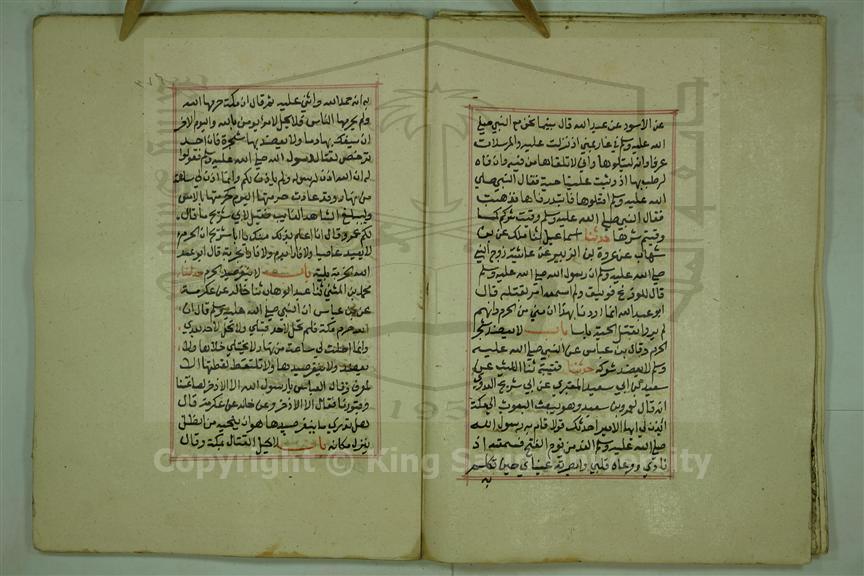 عن الاسود عن عبد الله قال بينما نحن مع النبي صلى
الله عليه وسلم في غار بمنى اذ نزلت عليه والمرسلات
عرفا وانه ليتلوها واني لاتلقاها من فيه وان فاه
لرطب بها اذ وثبت علينا حية فقال النبي صلى
الله عليه وسلم اقتلوها فابتدرناها فذهبت
فقال النبي صلى الله عليه وسلم وقيت شركم كما
وقيتم شرها حدثنا اسماعيل ثنا مالك عن بن
شهاب عن عروة بن الزبير عن عائشة زوج النبي
صلى الله عليه وسلم ان رسول الله صلى الله عليه وسلم
قال للوزغ فويسق ولم اسمعه امر بقتله قال
ابو عبد الله انما اردنا بهذا ان منى من الحرم وانهم
لم يروا بقتل الحية باسا باب لا يعضد شجر
الحرم وقال بن عباس عن النبي صلى الله عليه
وسلم لا يعضد شوكه حدثنا قتيبة ثنا الليث عن
سعيد بن ابي سعيد المقبري عن ابي شريح العدوي
انه قال لعمرو بن سعيد وهو يبعث البعوث الى مكة
ائذن لي ايها الامير احدثك قولا قام به رسول الله
صلى الله عليه وسلم الغد من يوم الفتح فسمعته اذ
ناي ووعاه قلبي وابصرته عيناي حين تكلم
به
به انه حمد الله واثنى عليه ثم قال ان مكة حرمها الله
ولم يحرمها الناس فلا يحل لامرئ يؤمن بالله واليوم الاخر
ان يسفك بها دما ولا يعضد بها شجرة فان احد
ترخص لقتال رسول الله صلى الله عليه وسلم فقولوا
له ان الله اذن لرسوله ولم ياذن لكم وانما اذن لي ساعة
من نهار وقد عادت حرمتها اليوم كحرمتها بالامس
وليبلغ الشاهد الغائب فقيل لابي شريح ما قال
لكم عمرو قال انا اعلم بذلك منك يا ابا شريح ان الحرم
لا يعيذ عاصيا ولا فارا بدم ولا فارا بخربة قال ابو عبد
الله الخربة بلية باب لا ينفر صيد الحرم حدثنا
محمد بن المثنى ثنا عبد الوهاب ثنا خالد عن عكرمة
عن بن عباس ان النبي صلى الله عليه وسلم قال ان
الله حرم مكة فلم تحل لاحد قبلي ولا تحل لاحد بعدي
وانما احلت لي ساعة من نهار لا يختلى خلاها ولا
يعضد ولا ينفر صيدها ولا تلتقط لقطتها الا
لمعرف وقال العباس يا رسول الله الا الاذخر لصاغتنا
وقبورنا فقال الا الاذخر وعن خالد عن عكرمة قال
هل تدري ما ينفر صيدها هو ان ينحيه من الظل
ينزل مكانه باب لا يحل القتال بمكة وقال
Copyright © King Saud University
195